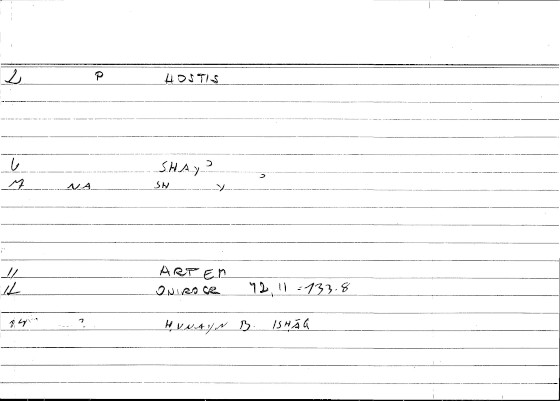 L P HOSTIS
SHAy
M NA SH y
11 ARTEM
12 ONIROCR 72, 11 = 133.8
HUNAYN B. ISHĀQ